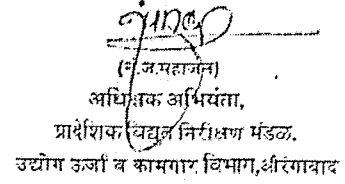 (न.ज.महाजन)
अधिक्षक अभियंता,
प्रादेशिक विद्युत निरीक्षण मंडळ.
उद्योग ऊर्जा व कामगार विभाग,औरंगाबाद